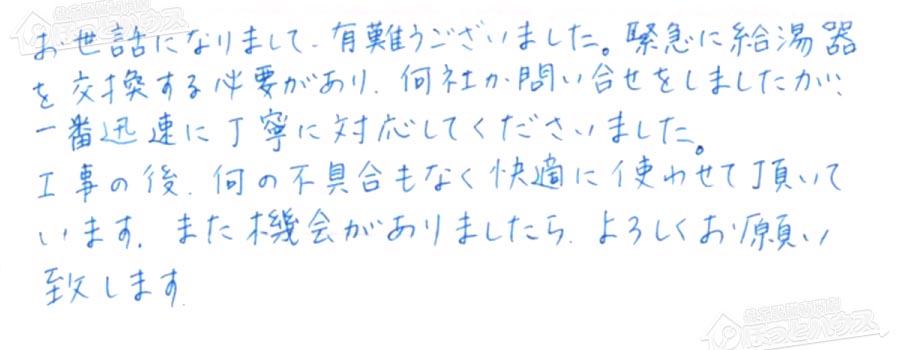 お世話になりまして、有難うございました。緊急に給湯器
を交換する必要があり、何社か問い合せをしましたが、
一番迅速に丁寧に対応してくださいました。
工事の後、何の不具合もなく快適に使わせて頂いて
います。また機会がありましたら、よろしくお願い
致します。
ほっとハウス